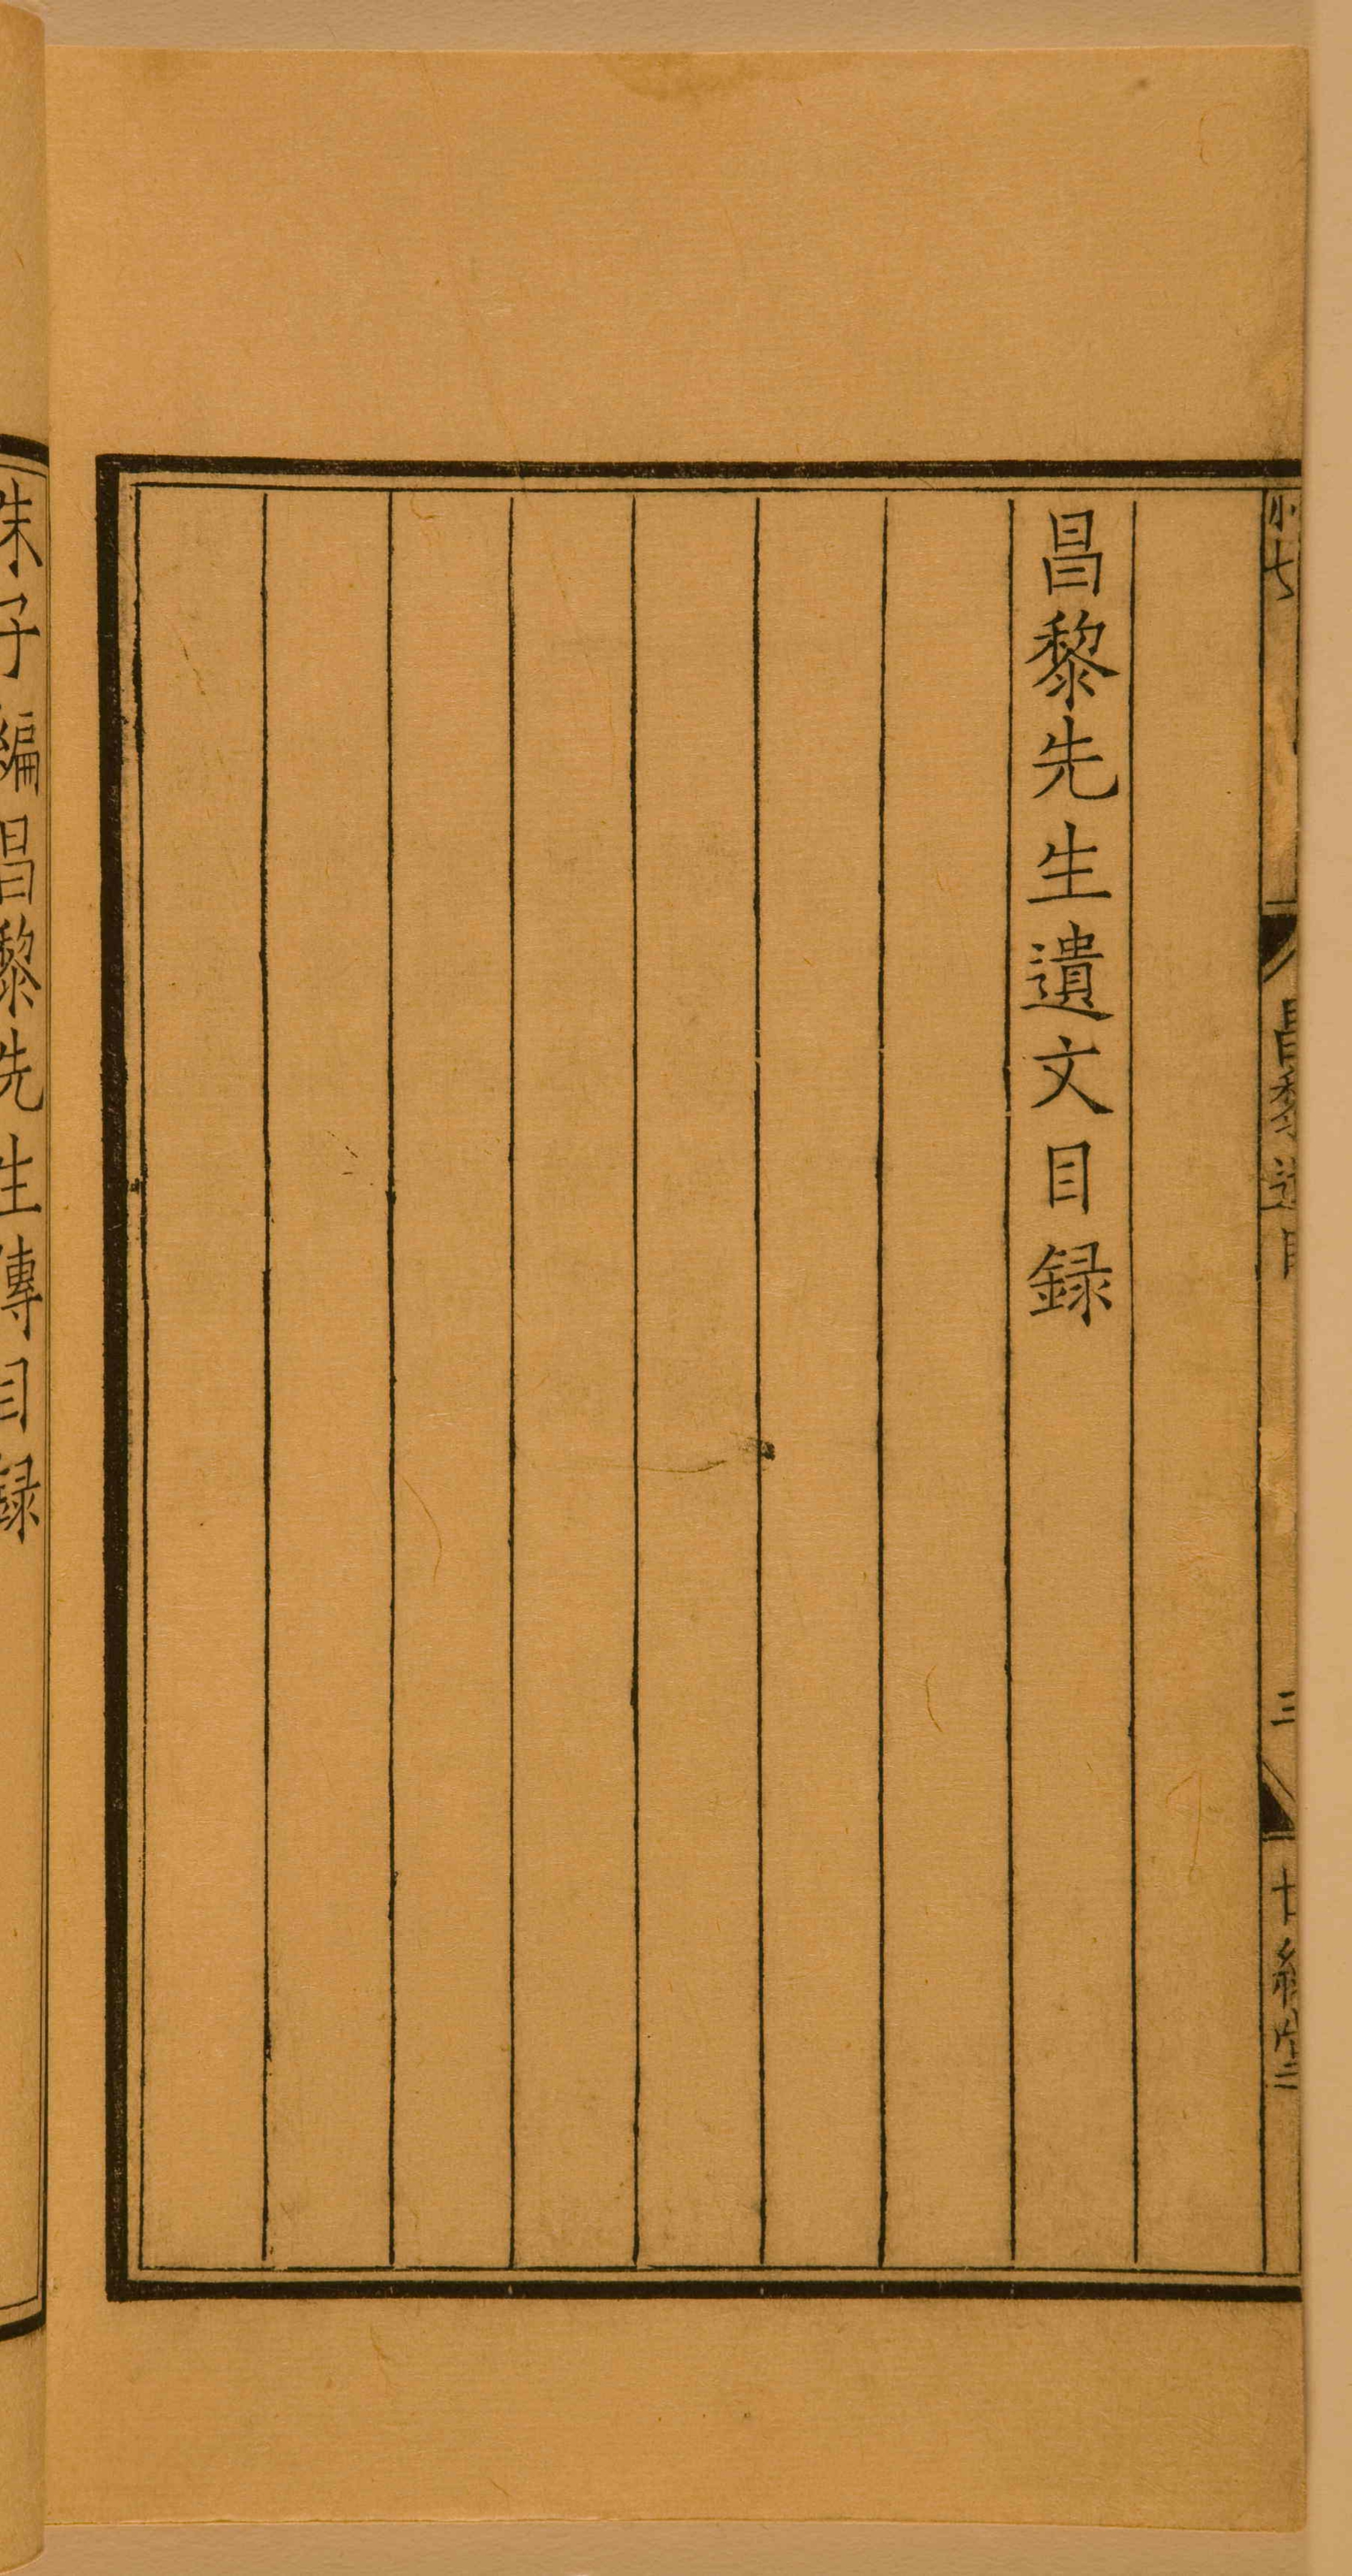 小七
昌黎遺目
三
昌黎先生遺文目録
朱子編昌黎先生傳目録